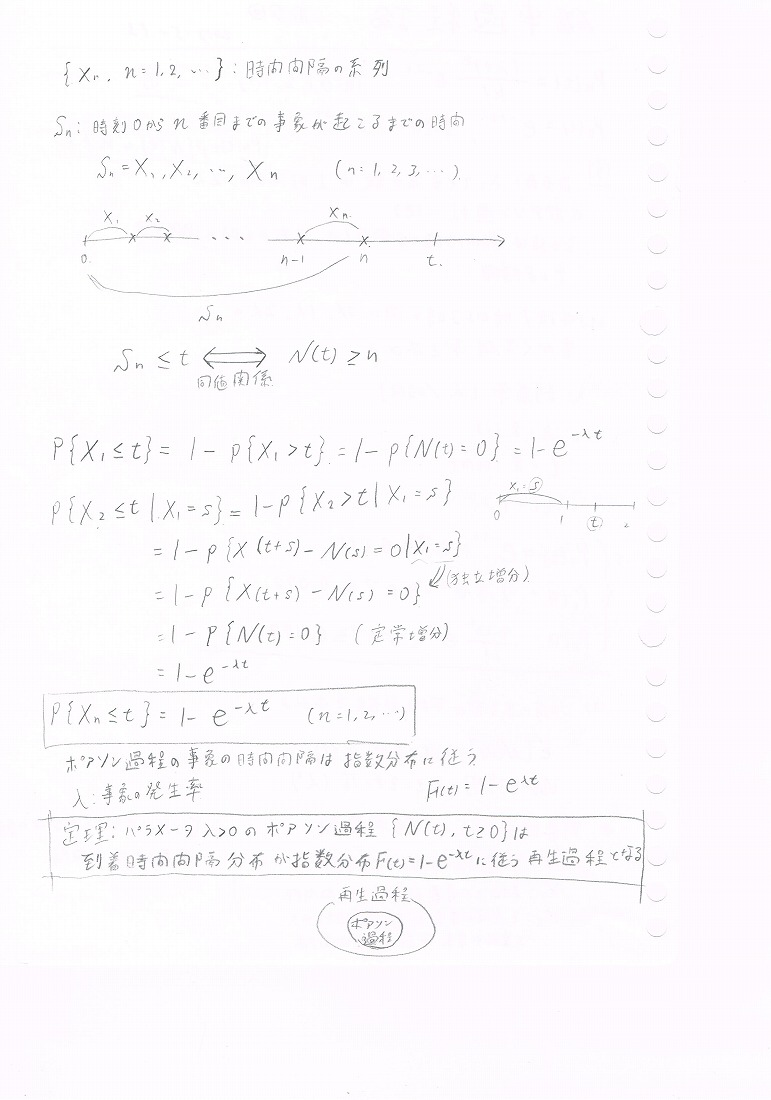 {Xn, n=1,2,…}: 時間間隔の系列
Sn: 時刻0からn番目までの事象が起こるまでの時間
Sn=X1,X2,…,Xn (n=1,2,3,…)
X1 X2 Xn
0 … n-1 n t
Sn
Sn≤t ⟺ N(t)≥n
同値関係
P{X1≤t}=1-P{X1>t}=1-P{N(t)=0}=1-e^{-λt}
P{X2≤t|X1=s}=1-P{X2>t|X1=s}
X1=s
0 1 t 2
=1-P{X(t+s)-N(s)=0|X1=s}
=1-P{X(t+s)-N(s)=0} (独立増分)
=1-P{N(t)=0} (定常増分)
=1-e^{-λt}
P{Xn≤t}=1-e^{-λt} (n=1,2,…)
ポアソン過程の事象の時間間隔は指数分布に従う
λ:事象の発生率 F(t)=1-e^{λt}
定理:パラメータλ>0のポアソン過程{N(t),t≥0}は
到着時間間隔分布が指数分布F(t)=1-e^{-λt}に従う再生過程となる
再生過程
ポアソン
過程